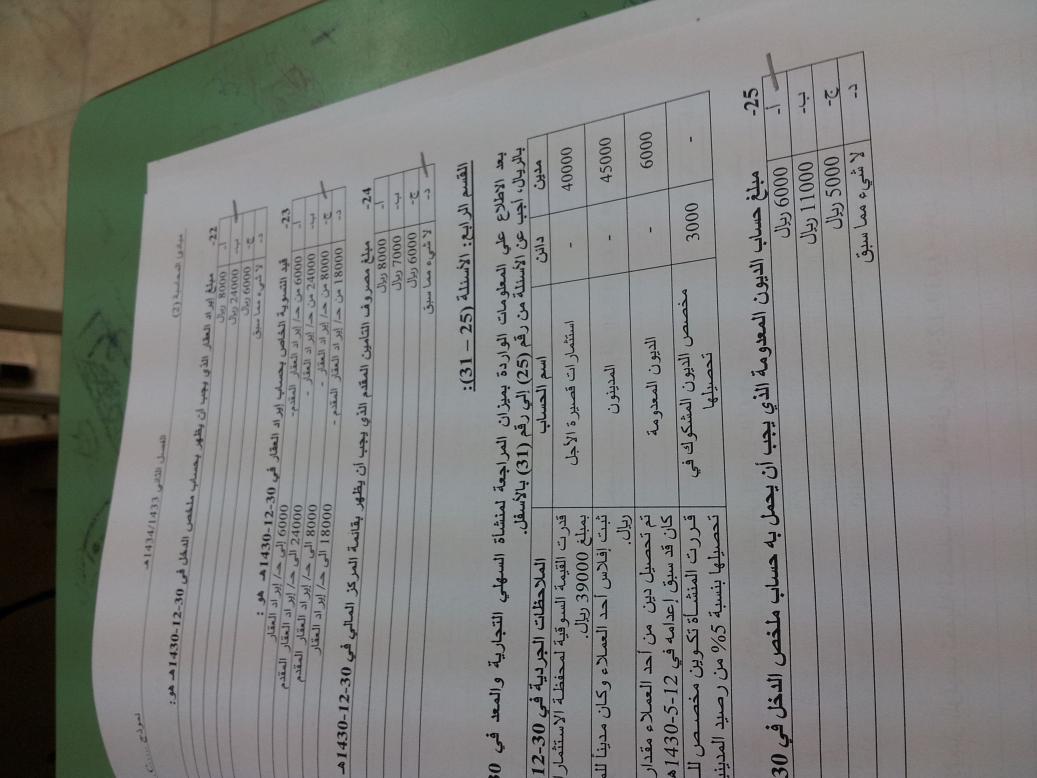 مبادئ المحاسبة (2) الفصل الثاني 1434/1433هـ نموذج
22- مبلغ إيراد العقار الذي يجب أن يظهر بحساب ملخص الدخل في 30-12-1430هـ هو:
أ- 8000 ريال
ب- 24000 ريال
ج- 6000 ريال
د- لا شيء مما سبق
23- قيد التسوية الخاص بحساب إيراد العقار في 30-12-1430هـ هو :
أ- 6000 من حـ/ إيراد العقار المقدم- 6000 إلى حـ/ إيراد العقار
ب- 24000 من حـ/ إيراد العقار - 24000 إلى حـ/ إيراد العقار المقدم
ج- 8000 من حـ/ إيراد العقار - 8000 إلى حـ/ إيراد العقار المقدم
د- 18000 من حـ/ إيراد العقار المقدم - 18000 إلى حـ/ إيراد العقار
24- مبلغ مصروف التأمين المقدم الذي يجب أن يظهر بقائمة المركز المالي في 30-12-1430هـ
أ- 8000 ريال
ب- 7000 ريال
ج- 6000 ريال
د- لا شيء مما سبق
القسم الرابع: الأسئلة (25 – 31):
بعد الاطلاع على المعلومات الواردة بميزان المراجعة لمنشأة السهلي التجارية والمعد في 30
بالريال، أجب عن الأسئلة من رقم (25) إلى رقم (31) بالأسفل.
مدين دائن اسم الحساب الملاحظات الجردية في 30-12
40000 - استثمارات قصيرة الأجل قدرت القيمة السوقية لمحفظة
بمبلغ 39000 ريال.
45000 - المدينون ثبت إفلاس أحد العملاء وكان مدينا
ريال.
6000 - الديون المعدومة تم تحصيل دين من أحد العملاء مقدار
كان قد سبق إعدامه في 12-5-1430هـ
- 3000 مخصص الديون المشكوك في تحصيلها قررت المنشأة تكوين مخصص
تحصيلها بنسبة 5% من رصيد
25- مبلغ حساب الديون المعدومة الذي يجب أن يحمل به حساب ملخص الدخل في 30
أ- 6000 ريال
ب- 11000 ريال
ج- 5000 ريال
د- لا شيء مما سبق